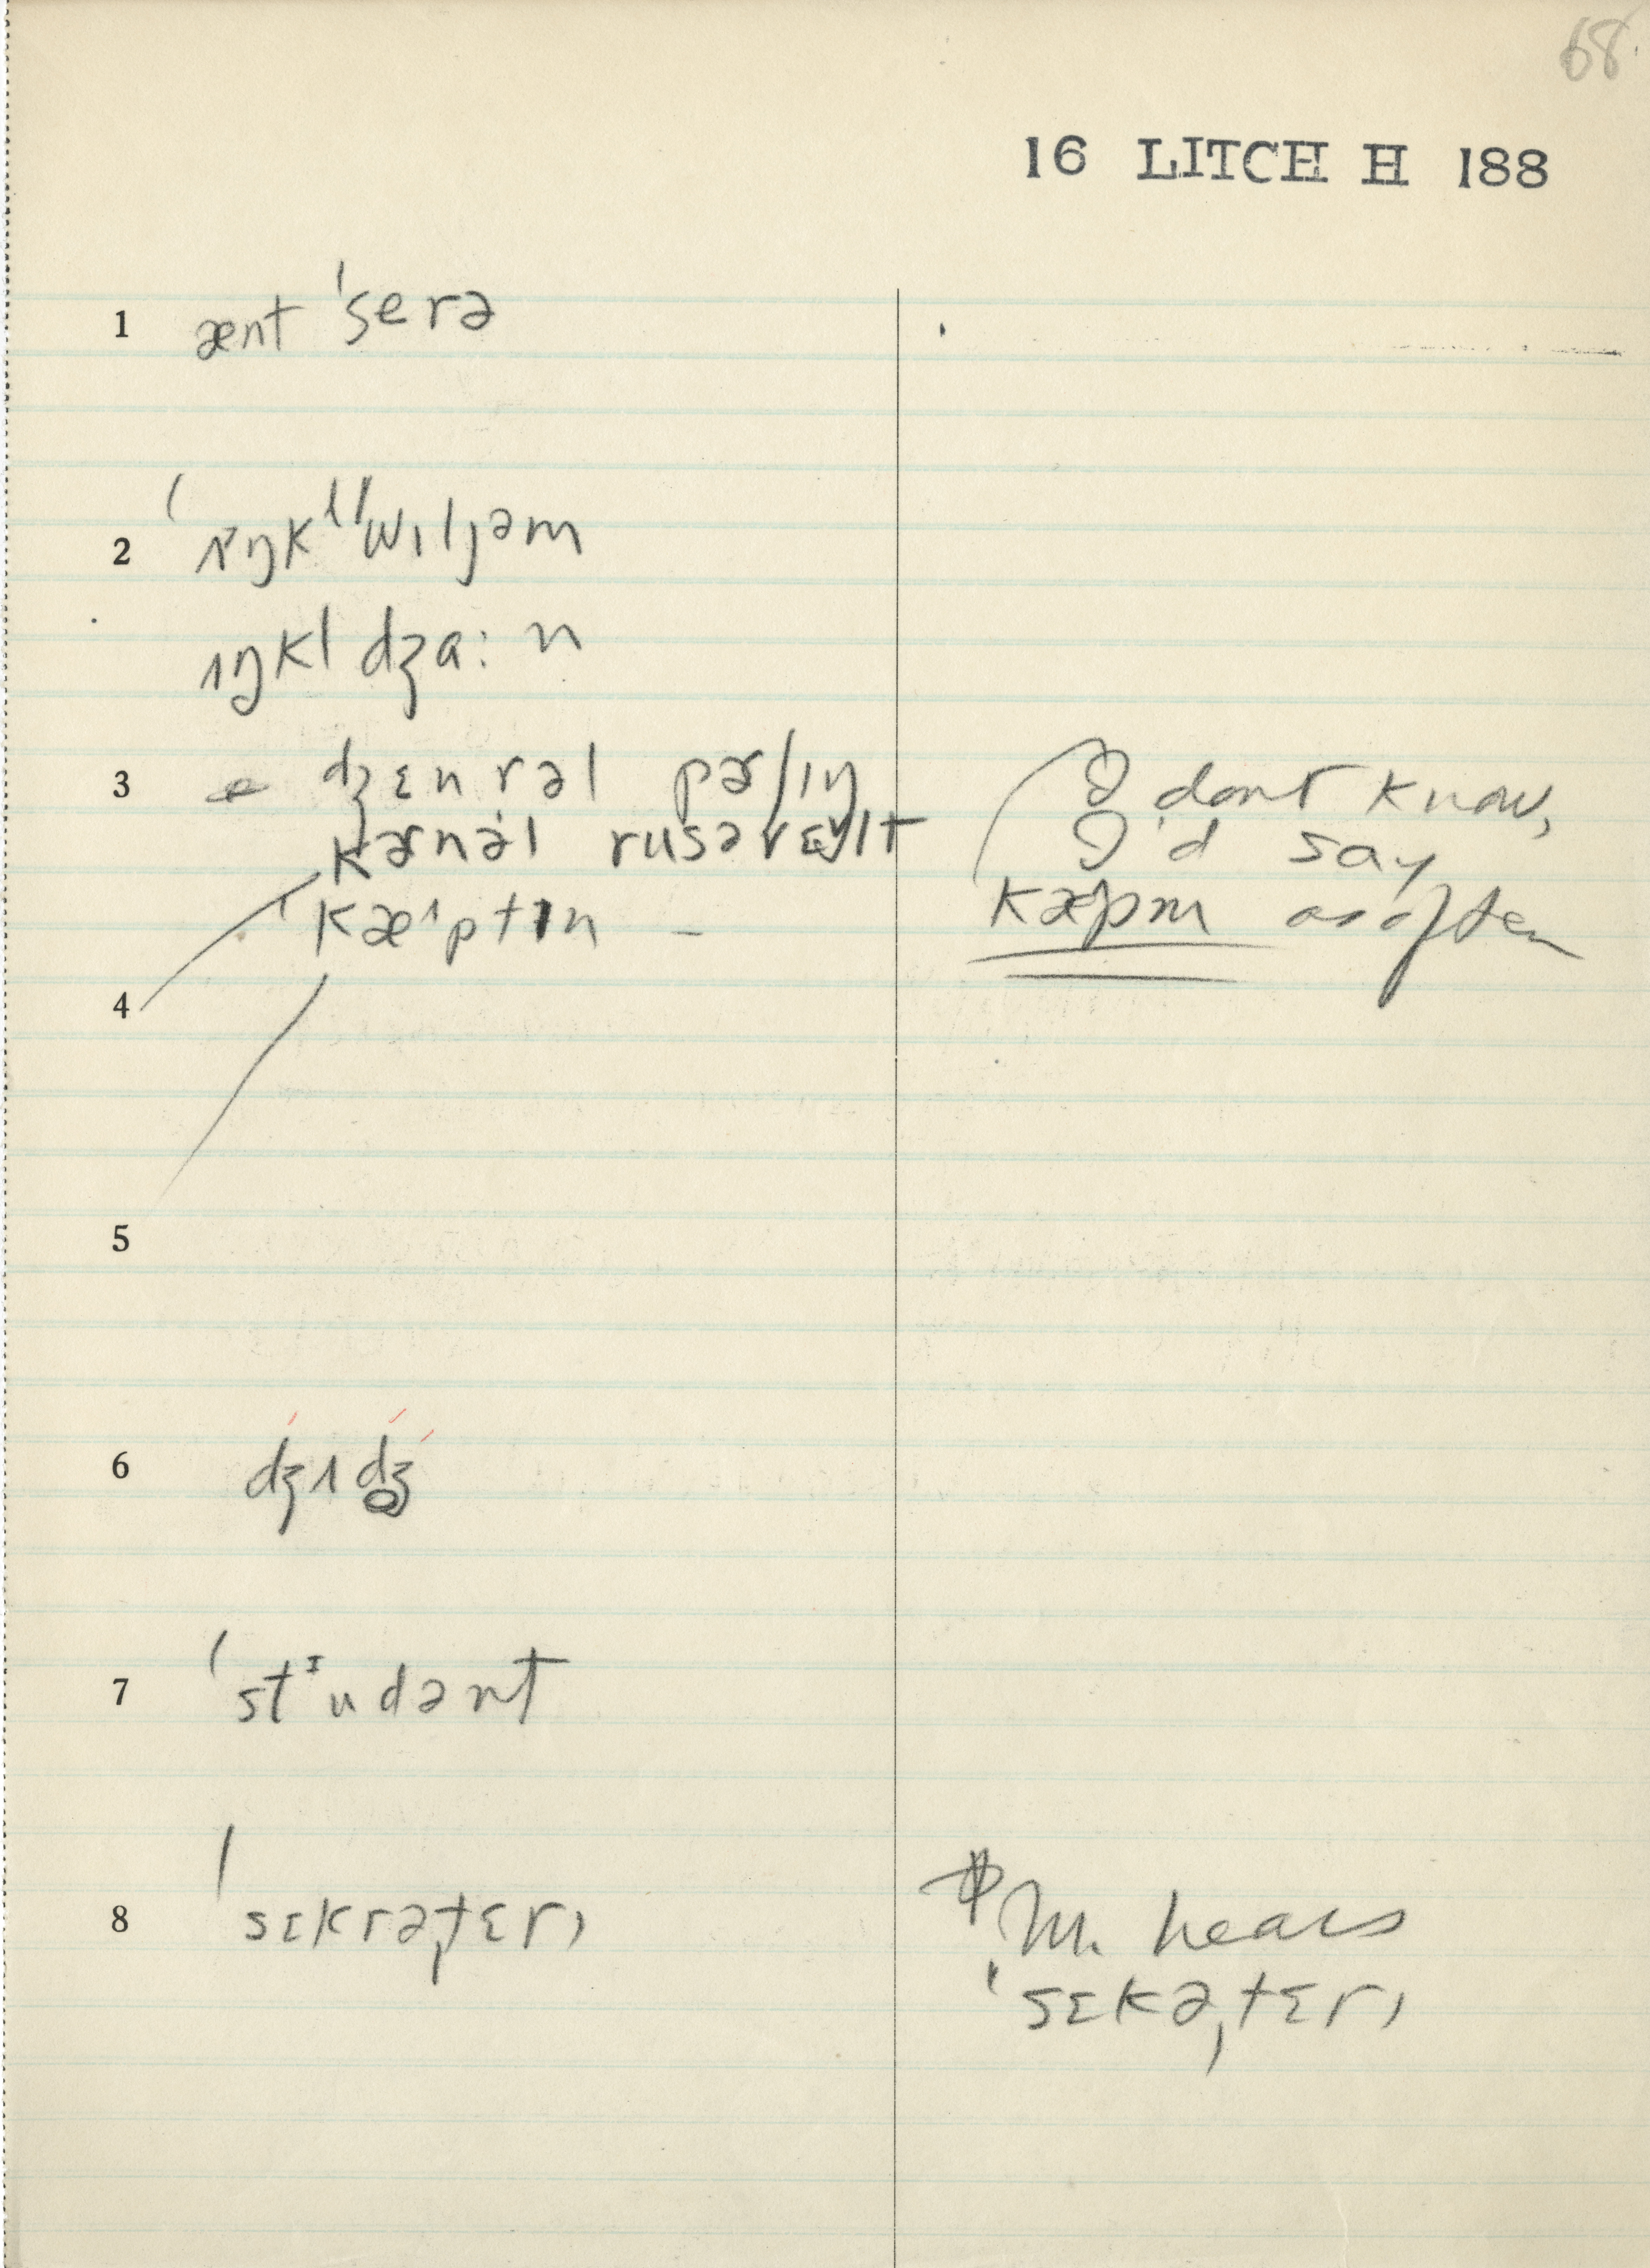 68
16 LITCH H 188
1 ænt ˈserə
2 ˈɪŋkl ˈwɪljəm
ɪŋkl dʒa:n
3 dʒɛnrəl pɚʃɪŋ
kɚnəl rusəvɛlt
kæptɪn –
I dont know,
I'd say
kæpm as often
4
5
6 dʒʌdʒ̥
7 ˈstᶦudənt
8 ˈsɛkrəˌtɛrɪ
M. hears
ˈsɛkəˌtɛrɪ